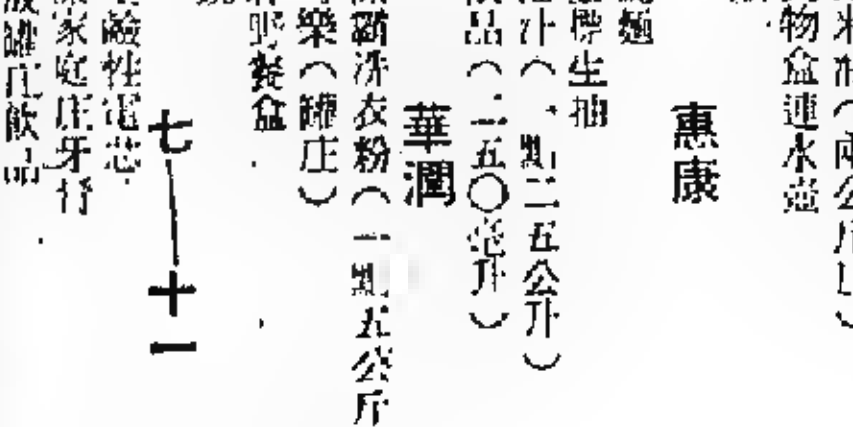 公斤
物盒連水壺
惠康
麵
標生抽
汁（一點二五公升）
品（二五〇毫升）
華潤
洗衣粉（一點五公斤
樂（罐庄）
野餐盒
七—十一
鹼性電芯
家庭庄牙膏
罐庄飲品